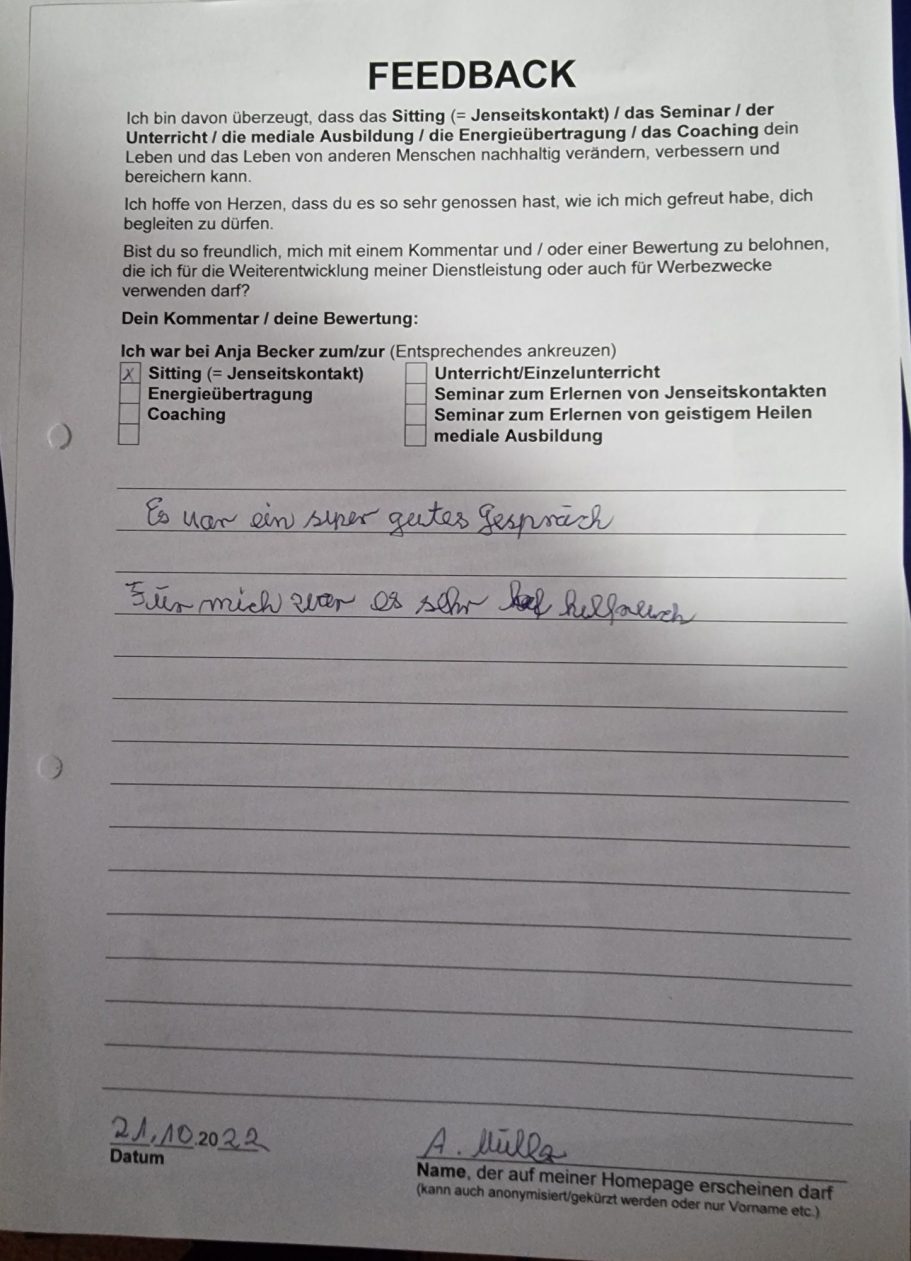 FEEDBACK
Ich bin davon überzeugt, dass das Sitting (= Jenseitskontakt) / das Seminar / der
Unterricht / die mediale Ausbildung / die Energieübertragung / das Coaching dein
Leben und das Leben von anderen Menschen nachhaltig verändern, verbessern und
bereichern kann.
Ich hoffe von Herzen, dass du es so sehr genossen hast, wie ich mich gefreut habe, dich
begleiten zu dürfen.
Bist du so freundlich, mich mit einem Kommentar und / oder einer Bewertung zu belohnen,
die ich für die Weiterentwicklung meiner Dienstleistung oder auch für Werbezwecke
verwenden darf?
Dein Kommentar / deine Bewertung:
Ich war bei Anja Becker zum/zur (Entsprechendes ankreuzen)
X Sitting (= Jenseitskontakt) Unterricht/Einzelunterricht
Energieübertragung Seminar zum Erlernen von Jenseitskontakten
Coaching Seminar zum Erlernen von geistigem Heilen
mediale Ausbildung
Es war ein super gutes Gespräch
Für mich war es sehr hilfreich
21.10.2022 A. Müller
Datum Name, der auf meiner Homepage erscheinen darf
(kann auch anonymisiert/gekürzt werden oder nur Vorname etc.)